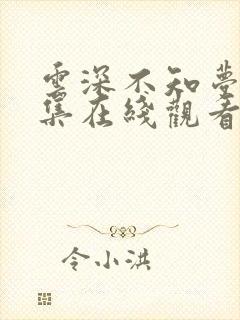 雲深不知夢
集在綫觀看
令小洪